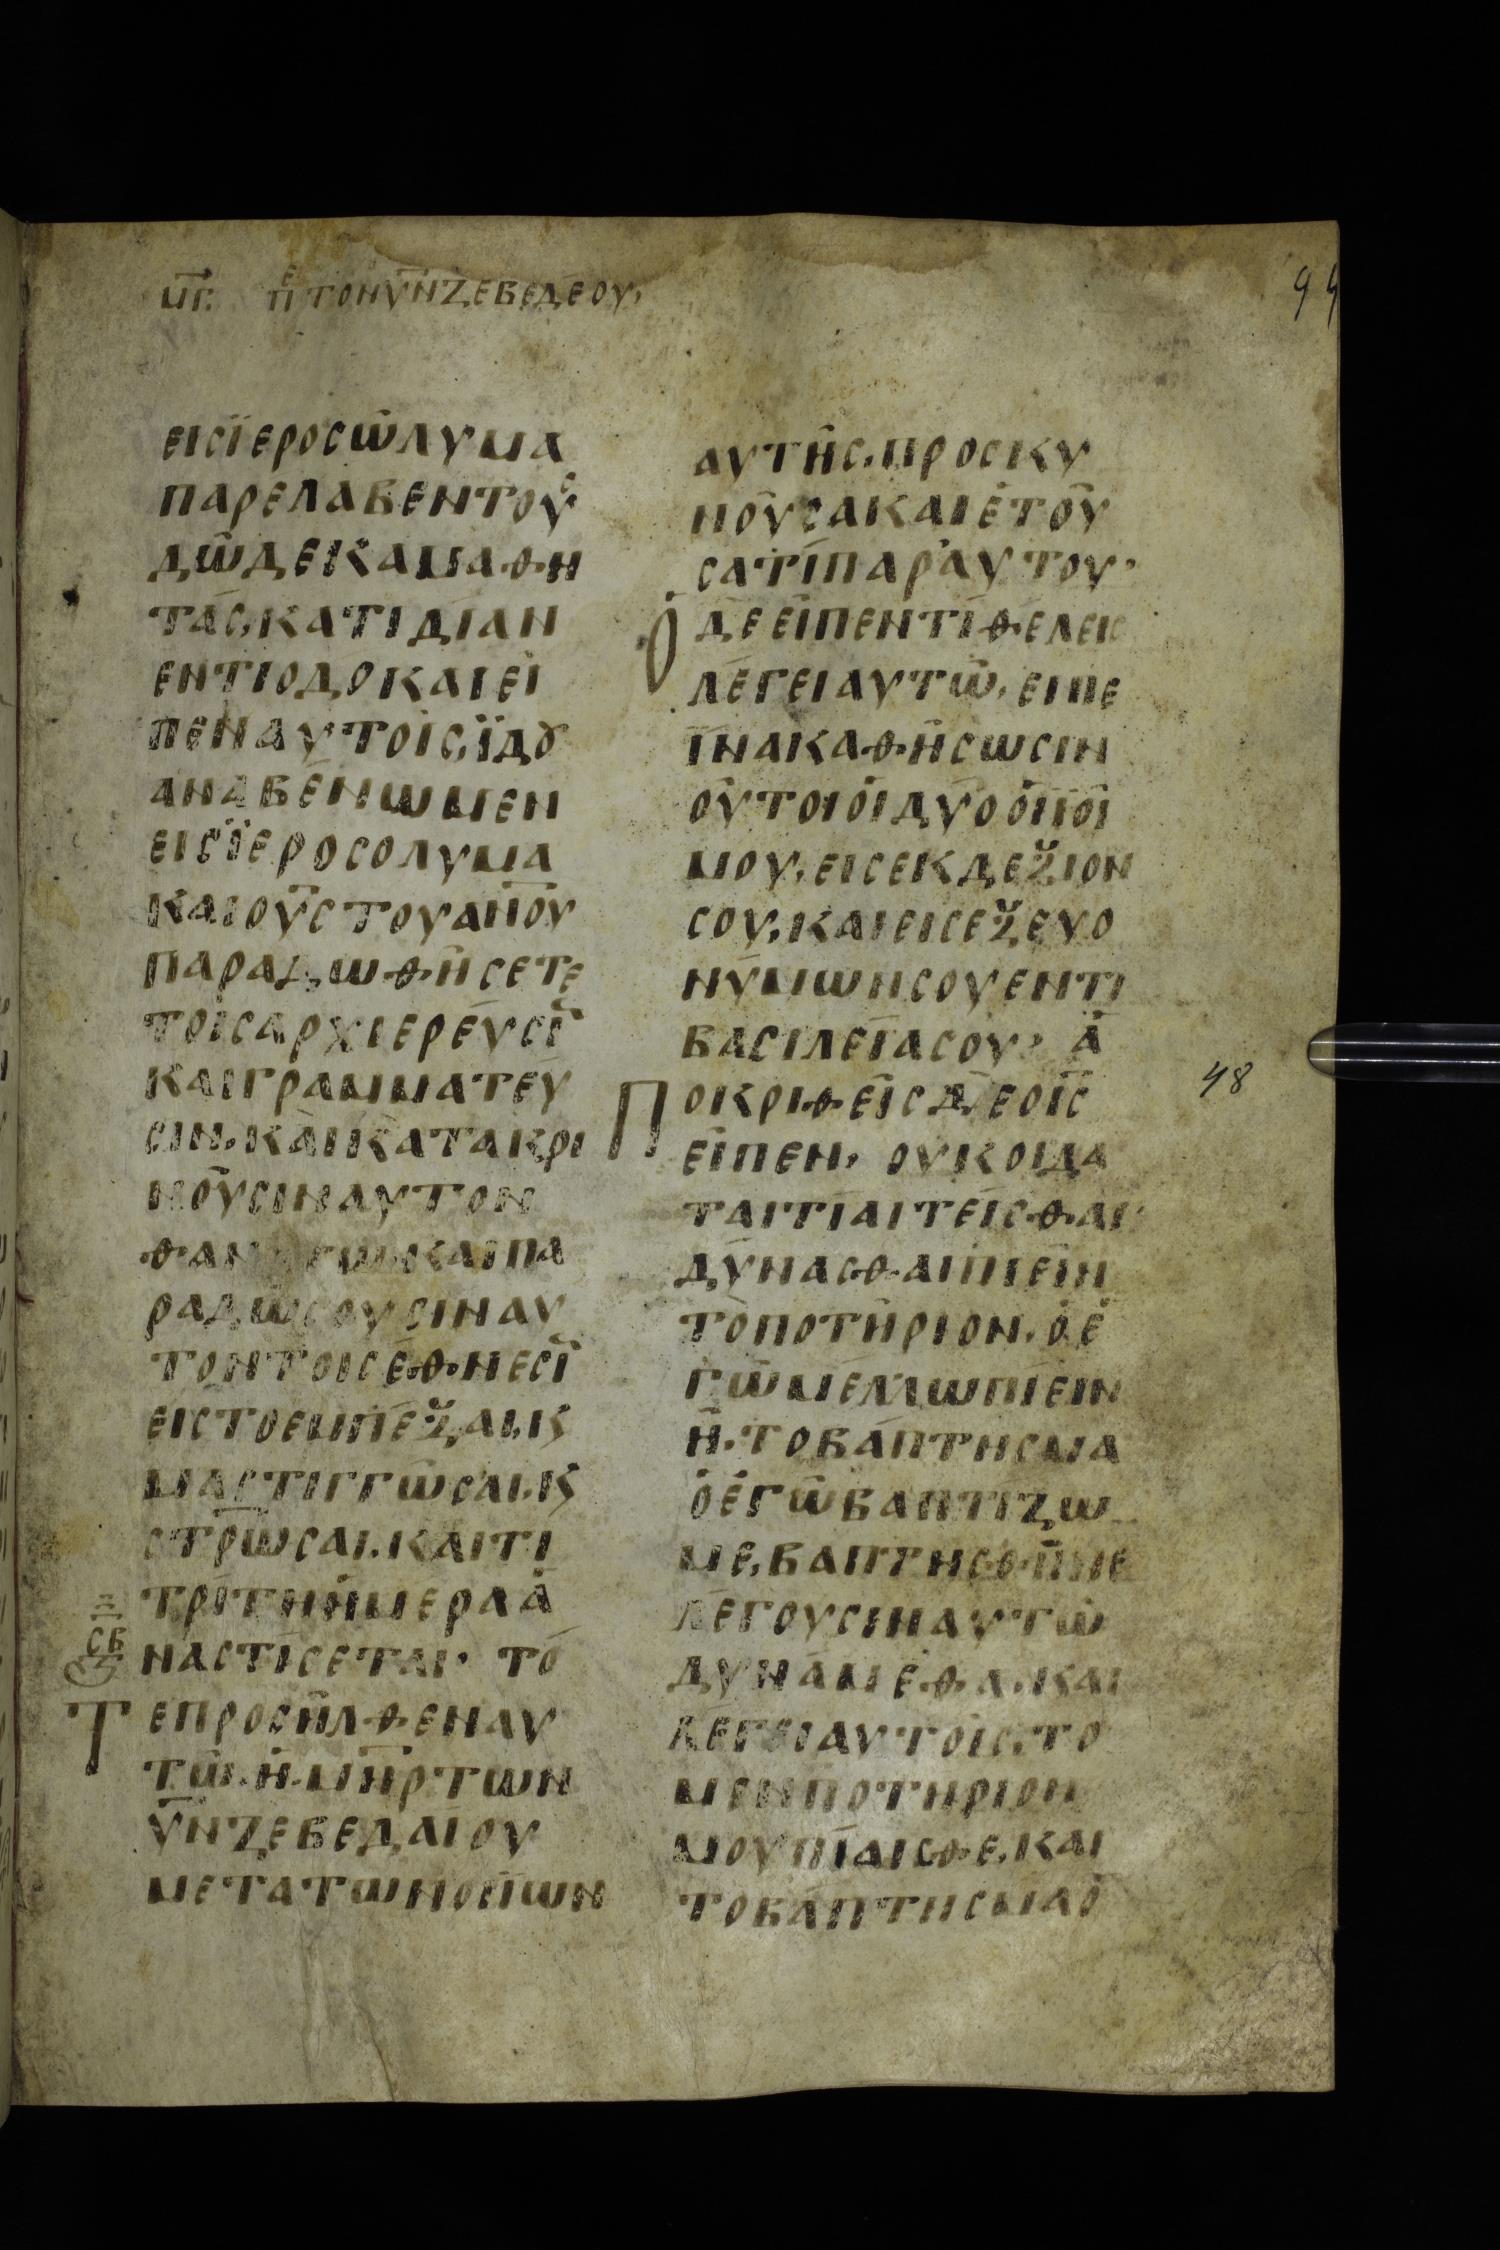 ΜΓ. ΠΕ ΤΟΝ ΥΝ ΖΕΒΕΔΕΟΥ,
94
ΕΙΣ ΪΕΡΟΣΩΛΥΜΑ
ΠΑΡΕΛΑΒΕΝ ΤΟΥΣ
ΔΩΔΕΚΑ ΜΑΘΗ
ΤΑΣ, ΚΑΤΙΔΙΑΝ
ΕΝ ΤΙ ΟΔΟ ΚΑΙ ΕΙ
ΠΕΝ ΑΥΤΟΙΣ, ΪΔȢ
ΑΝΑΒΕΝΩΜΕΝ
ΕΙΣ ΪΕΡΟΣΟΛΥΜΑ
ΚΑΙ Ο ΥΣ ΤΟΥ ΑΝΟΥ
ΠΑΡΑΔΩΘΗΣΕΤΕ
ΤΟΙΣ ΑΡΧΙΕΡΕΥΣΙ
ΚΑΙ ΓΡΑΜΜΑΤΕΥ
ΣΙΝ, ΚΑΙ ΚΑΤΑΚΡΙ
ΝΟΥΣΙΝ ΑΥΤΟΝ
ΚΑΙ ΠΑ
ΡΑΔΩΣΟΥΣΙΝ ΑΥ
ΤΟΝ ΤΟΙΣ ΕΘΝΕΣΙ
ΕΙΣ ΤΟ ΕΜΠΕΞΑΙ, Κ
ΜΑΣΤΙΓΓΩΣΑΙ, Κ
ΣΤΡΩΣΑΙ. ΚΑΙ ΤΙ
ΤΡΙΤΗ ΗΜΕΡΑ Α
ΝΑΣΤΙΣΕΤΑΙ· ΤΟ
ΣΒ
ΤΕ ΠΡΟΣΗΛΘΕΝ ΑΥ
ΤΩ. Η ΜΗΡ ΤΩΝ
ΥΝ ΖΕΒΕΔΑΙΟΥ
ΜΕΤΑ ΤΩΝ
ΑΥΤΗΣ, ΠΡΟΣΚΥ
ΝΟΥΣΑ ΚΑΙ ΕΤΟΥ
ΣΑ ΤΙ ΠΑΡ ΑΥΤΟΥ·
Ο ΔΕ ΕΙΠΕΝ ΤΙ ΘΕΛΕΙΣ
ΛΕΓΕΙ ΑΥΤΩ, ΕΙΠΕ
ΪΝΑ ΚΑΘΗΣΩΣΙΝ
ΟΥΤΟΙ ΟΙ ΔΥΟ
ΜΟΥ, ΕΙΣ ΕΚ ΔΕΞΙΟΝ
ΣΟΥ, ΚΑΙ ΕΙΣ ΕΞ ΕΥΟ
ΝΥΜΩΝ ΣΟΥ ΕΝ ΤΙ
ΒΑΣΙΛΕΙΑ ΣΟΥ· Α
ΠΟΚΡΙΘΕΙΣ ΔΕ Ο ΙΣ
ΕΙΠΕΝ, ΟΥΚ ΟΙΔΑ
ΤΑΙ ΤΙ ΑΙΤΕΙΣΘΑΙ·
ΔΥΝΑΣΘΑΙ ΠΙΕΙΝ
ΤΟ ΠΟΤΗΡΙΟΝ. Ο Ε
ΓΩ ΜΕΛΛΩ ΠΙΕΙΝ
Η. ΤΟ ΒΑΠΤΗΣΜΑ
Ο ΕΓΩ ΒΑΠΤΙΖΩ
ΜΕ, ΒΑΠΤΗΣΘΗΝΕ
ΛΕΓΟΥΣΙΝ ΑΥΤΩ
ΔΥΝΑΜΕΘΑ. ΚΑΙ
ΛΕΓΕΙ ΑΥΤΟΙΣ, ΤΟ
ΜΕΝ ΠΟΤΗΡΙΟΝ
ΜΟΥ ΠΙΑΙΣΘΕ, ΚΑΙ
ΤΟ ΒΑΠΤΗΣΜΑ Ο
48